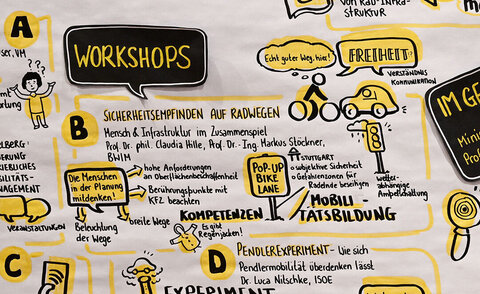 A
WORKSHOPS
ser, VM
B
SICHERHEITSEMPFINDEN AUF RADWEGEN
Mensch & Infrastruktur im Zusammenspiel
Prof. Dr. phil. Claudia Hille, Prof. Dr.-Ing. Markus Stöckner,
BWIM
Die Menschen
in der Planung
mitdenken!
hohe Anforderungen
an Oberflächenbeschaffenheit
Berührungspunkte mit
KFZ beachten
breite Wege
Beleuchtung
der Wege
Es gibt
Regenjacken!
KOMPETENZEN
POP-UP
BIKE
LANE
STUTTGART
subjektive Sicherheit
Gefahrenzonen für
Radende beseitigen
MOBILI-
TÄTSBILDUNG
Echt guter Weg, hier!
FREIHEIT
VERSTÄNDNIS
KOMMUNIKATION
wetter-
abhängige
Ampelschaltung
STRUKTUR
IM GE
Minis
Prof
BERG,
ERUNG
RIEBLICHES
ILITÄTS-
NAGEMENT
VERANSTALTUNGEN
C
D
PENDLEREXPERIMENT - Wie sich
Pendlermobilität überdenken lässt
Dr. Luca Nitschke, ISOE
EXPERIMENT